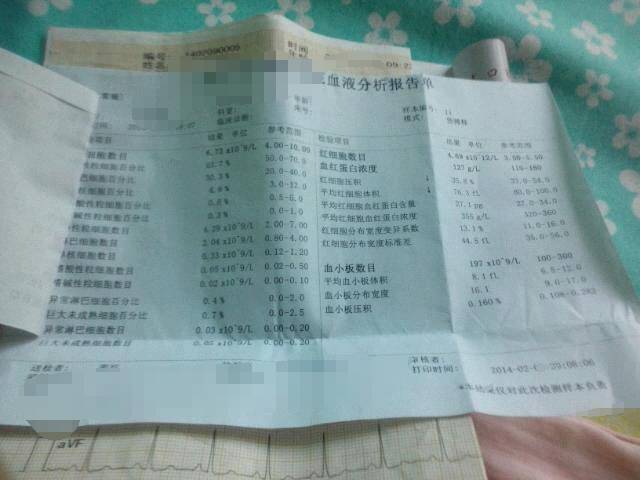 编号: 1402090005
时间
09:2
血液分析报告单
科室: 年龄: 样本编号: 11
临床诊断: 床号: 模式:
项目 结果 单位 参考范围 检验项目 结果 单位 参考范围
细胞数目 6.72 x10^9/L 4.00-10.00 红细胞数目 4.69 x10^12/L 3.50-5.50
性粒细胞百分比 63.7 % 50.0-70.0 血红蛋白浓度 127 g/L 110-160
巴细胞百分比 30.3 % 20.0-40.0 红细胞压积 ↓ 35.8 % 37.0-54.0
核细胞百分比 4.9 % 3.0-12.0 平均红细胞体积 ↓ 76.3 fL 80.0-100.0
酸性粒细胞百分比 0.8 % 0.5-5.0 平均红细胞血红蛋白含量 27.1 pg 27.0-34.0
碱性粒细胞百分比 0.3 % 0.0-1.0 平均红细胞血红蛋白浓度 355 g/L 320-360
性粒细胞数目 4.29 x10^9/L 2.00-7.00 红细胞分布宽度变异系数 13.1 % 11.0-16.0
淋巴细胞数目 2.04 x10^9/L 0.80-4.00 红细胞分布宽度标准差 44.5 fL 35.0-56.0
单核细胞数目 0.33 x10^9/L 0.12-1.20
嗜酸性粒细胞数目 0.05 x10^9/L 0.02-0.50 血小板数目 197 x10^9/L 100-300
嗜碱性粒细胞数目 0.02 x10^9/L 0.00-0.10 平均血小板体积 8.1 fL 6.5-12.0
异常淋巴细胞百分比 0.4 % 0.0-2.0 血小板分布宽度 16.1 9.0-17.0
巨大未成熟细胞百分比 0.7 % 0.0-2.5 血小板压积 0.160 % 0.108-0.282
异常淋巴细胞数目 0.03 x10^9/L 0.00-0.20
巨大未成熟细胞数目 0.05 x10^9/L 0.00-0.20
送检者: 审核者:
打印时间: 2014-02- 09:08:06
结果仅对此次检测样本负责
aVF